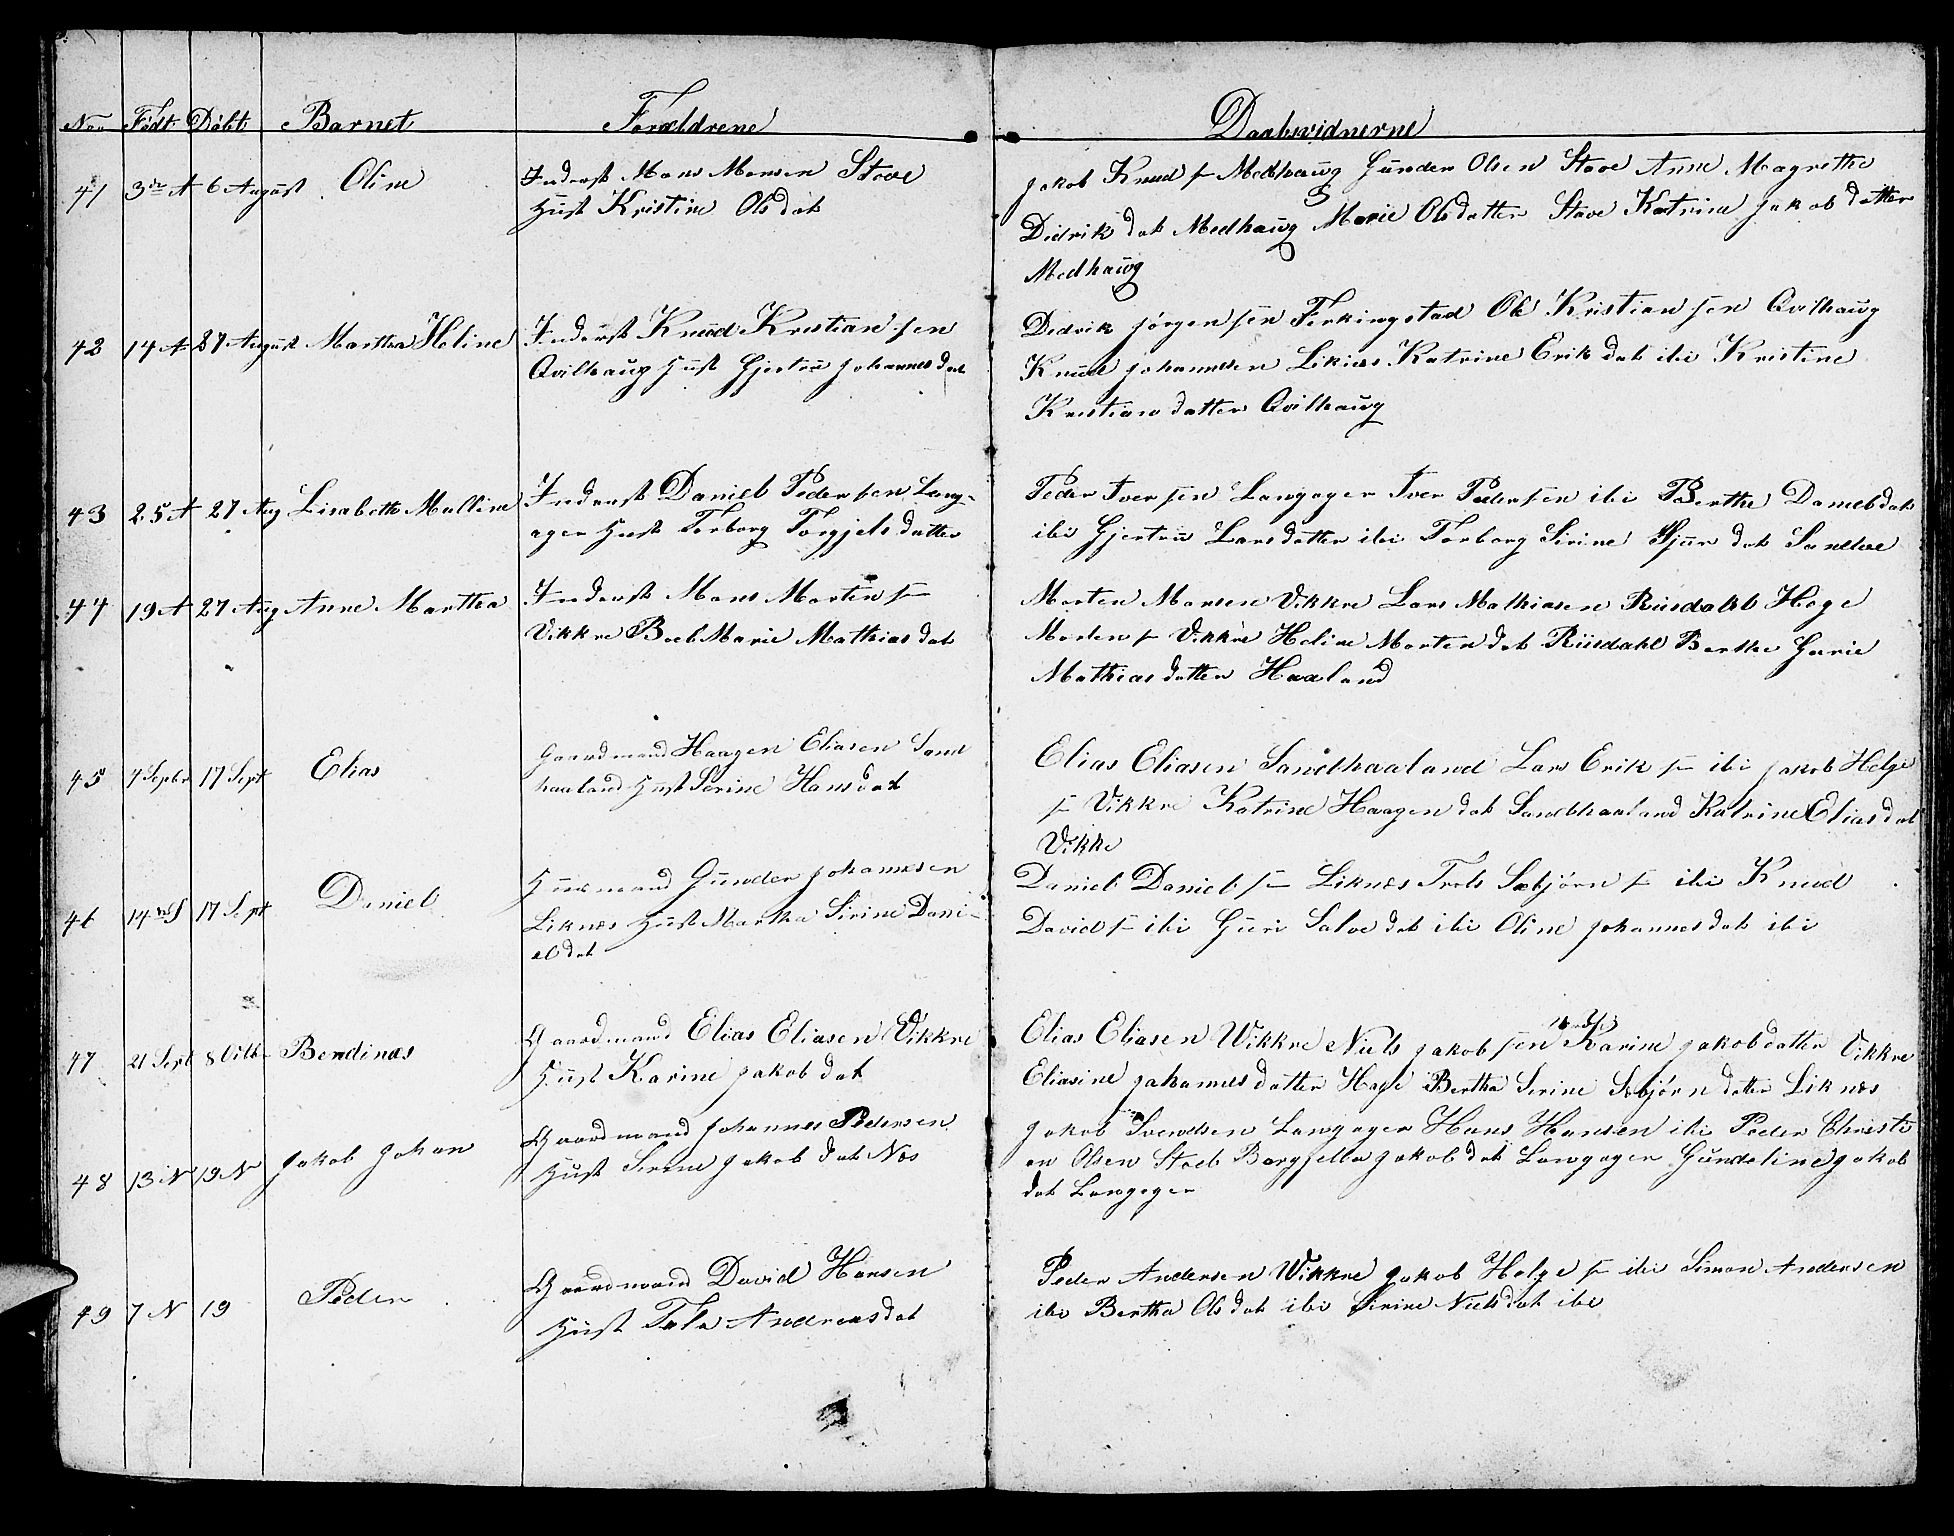 No. Født Døbt Barnet Forældrene Daabsvidnerne
41 3die A 6 August Oline Inderst Mons Monsen Stove
Hust Kristine Olsdat
Jakob Knud s Medhaug Gunder Olsen Stove Anne Magrethe
Didrik dat Medhaug Marie Olsdatter Stave Katrina Jakobdatter
Medhaug
42 14 A 27 August Martha Heline Inderst Knud Kristiansen
Qvilhaug Hust Gjertru Johannesdat
Didrik Jørgensen Ferkingstad Ole Kristiansen Qvilhaug
Knud Johannesen Liknes Katrine Erikdat ibi Kristine
Kristiandatter Qvilhaug
43 25 A 27 Aug Lisabeth Malline Inderst Daniel Pedersen Lang-
ager Hust Torborg Torgjelsdatter
Peder Iversen Langager Iver Pedersen ibi Berthe Danieldat
ibi Gjertru Larsdatter ibi Torborg Sirine Sjurdat Sandve
44 19 A 27 Aug Anne Martha Inderst Mons Morten s
Vikkre Boel Marie Mathiasdat
Morten Monsen Vikkre Lars Mathiasen Riisdahl Hege
Morten s Vikkre Heline Mortendat Riisdahl Berthe Garie
Mathiasdatter Haaland
45 4 Septbr 17 Sept Elias Gaardmand Haagen Eliasen Sand
haaland Hust Serine Hansdat
Elias Eliasen Sandhaaland Lars Erik s ibi Jakob Helge
s Vikkre Katrine Haagendat Sandhaaland Katrine Eliasdat
Vikke
46 14de S 17 Sept Daniel Huusmand Gunder Johannesen
Liknes Hust Martha Sirine Dani-
eldat
Daniel Daniel s Liknes Trols Sæbjørn s ibi Knud
David s ibi Guri Salvedat ibi Oline Johannesdat ibi
47 21 Sept 8 Octb Bendines Gaardmand Elias Eliasen Vikkre
Hust Karine Jakobdat
Elias Eliasen Wikkre Niels Jakobsen Karine Jakobdatter Vikkre
Eliasine Johannesdatter Hage Bertha Serine Sebjørndatter Liknes
48 13 N 19 N Jakob Johan Gaardmand Johannes Pedersen
Hust Serine Jakobdat Nes
Jakob Svendsen Langager Hans Hansen ibi Peder Christi
an Olsen Stoel Borgjella Jakobdat Langager Gundeline Jakob
dat Langager
49 7 N 19 Peder Gaardmand David Hansen
Hust Tala Andreasdat
Peder Andersen Wikkre Jakob Helge s ibi Simon Andersen
ibi Bertha Olsdat ibi Sirine Nielsdat ibi